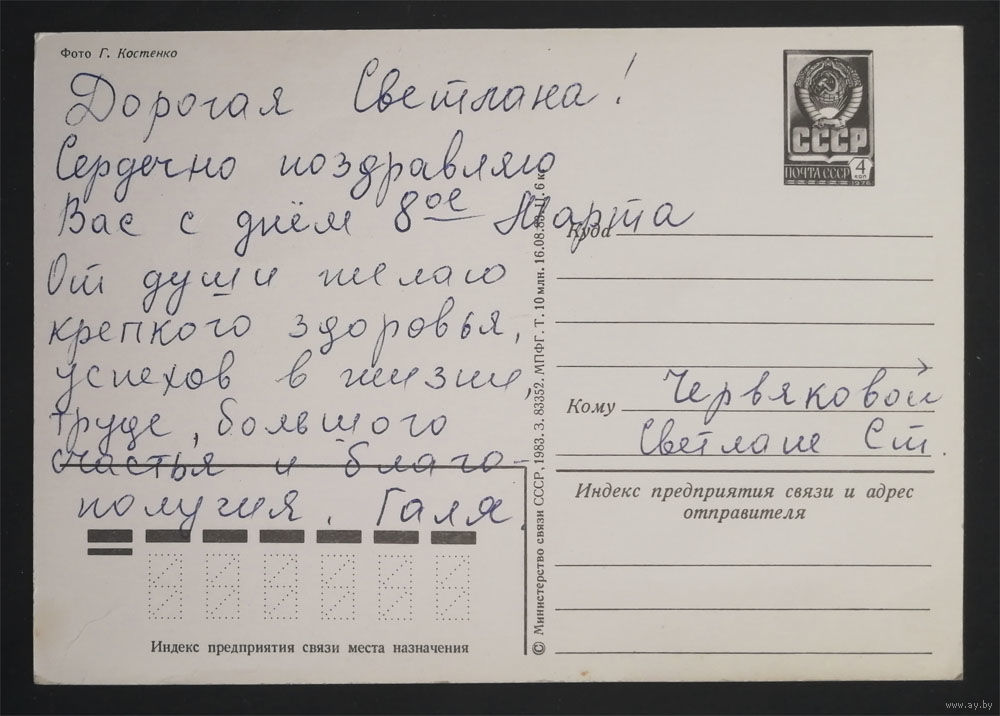 Фото Г. Костенко
Дорогая Светлана!
Сердечно поздравляю
Вас с днём 8ое Марта
От души желаю
крепкого здоровья,
успехов в жизни,
труде, большого
счастья и благо-
получия. Галя.
СССР
ПОЧТА СССР 4 КОП
1976
Куда
Кому Червяковой
Светлане Ст.
Индекс предприятия связи и адрес
отправителя
Индекс предприятия связи места назначения
© Министерство связи СССР, 1983. З. 83352. МПФГ. Т. 10 млн. 16.08.83. Ц. 6 к.
www.ay.by